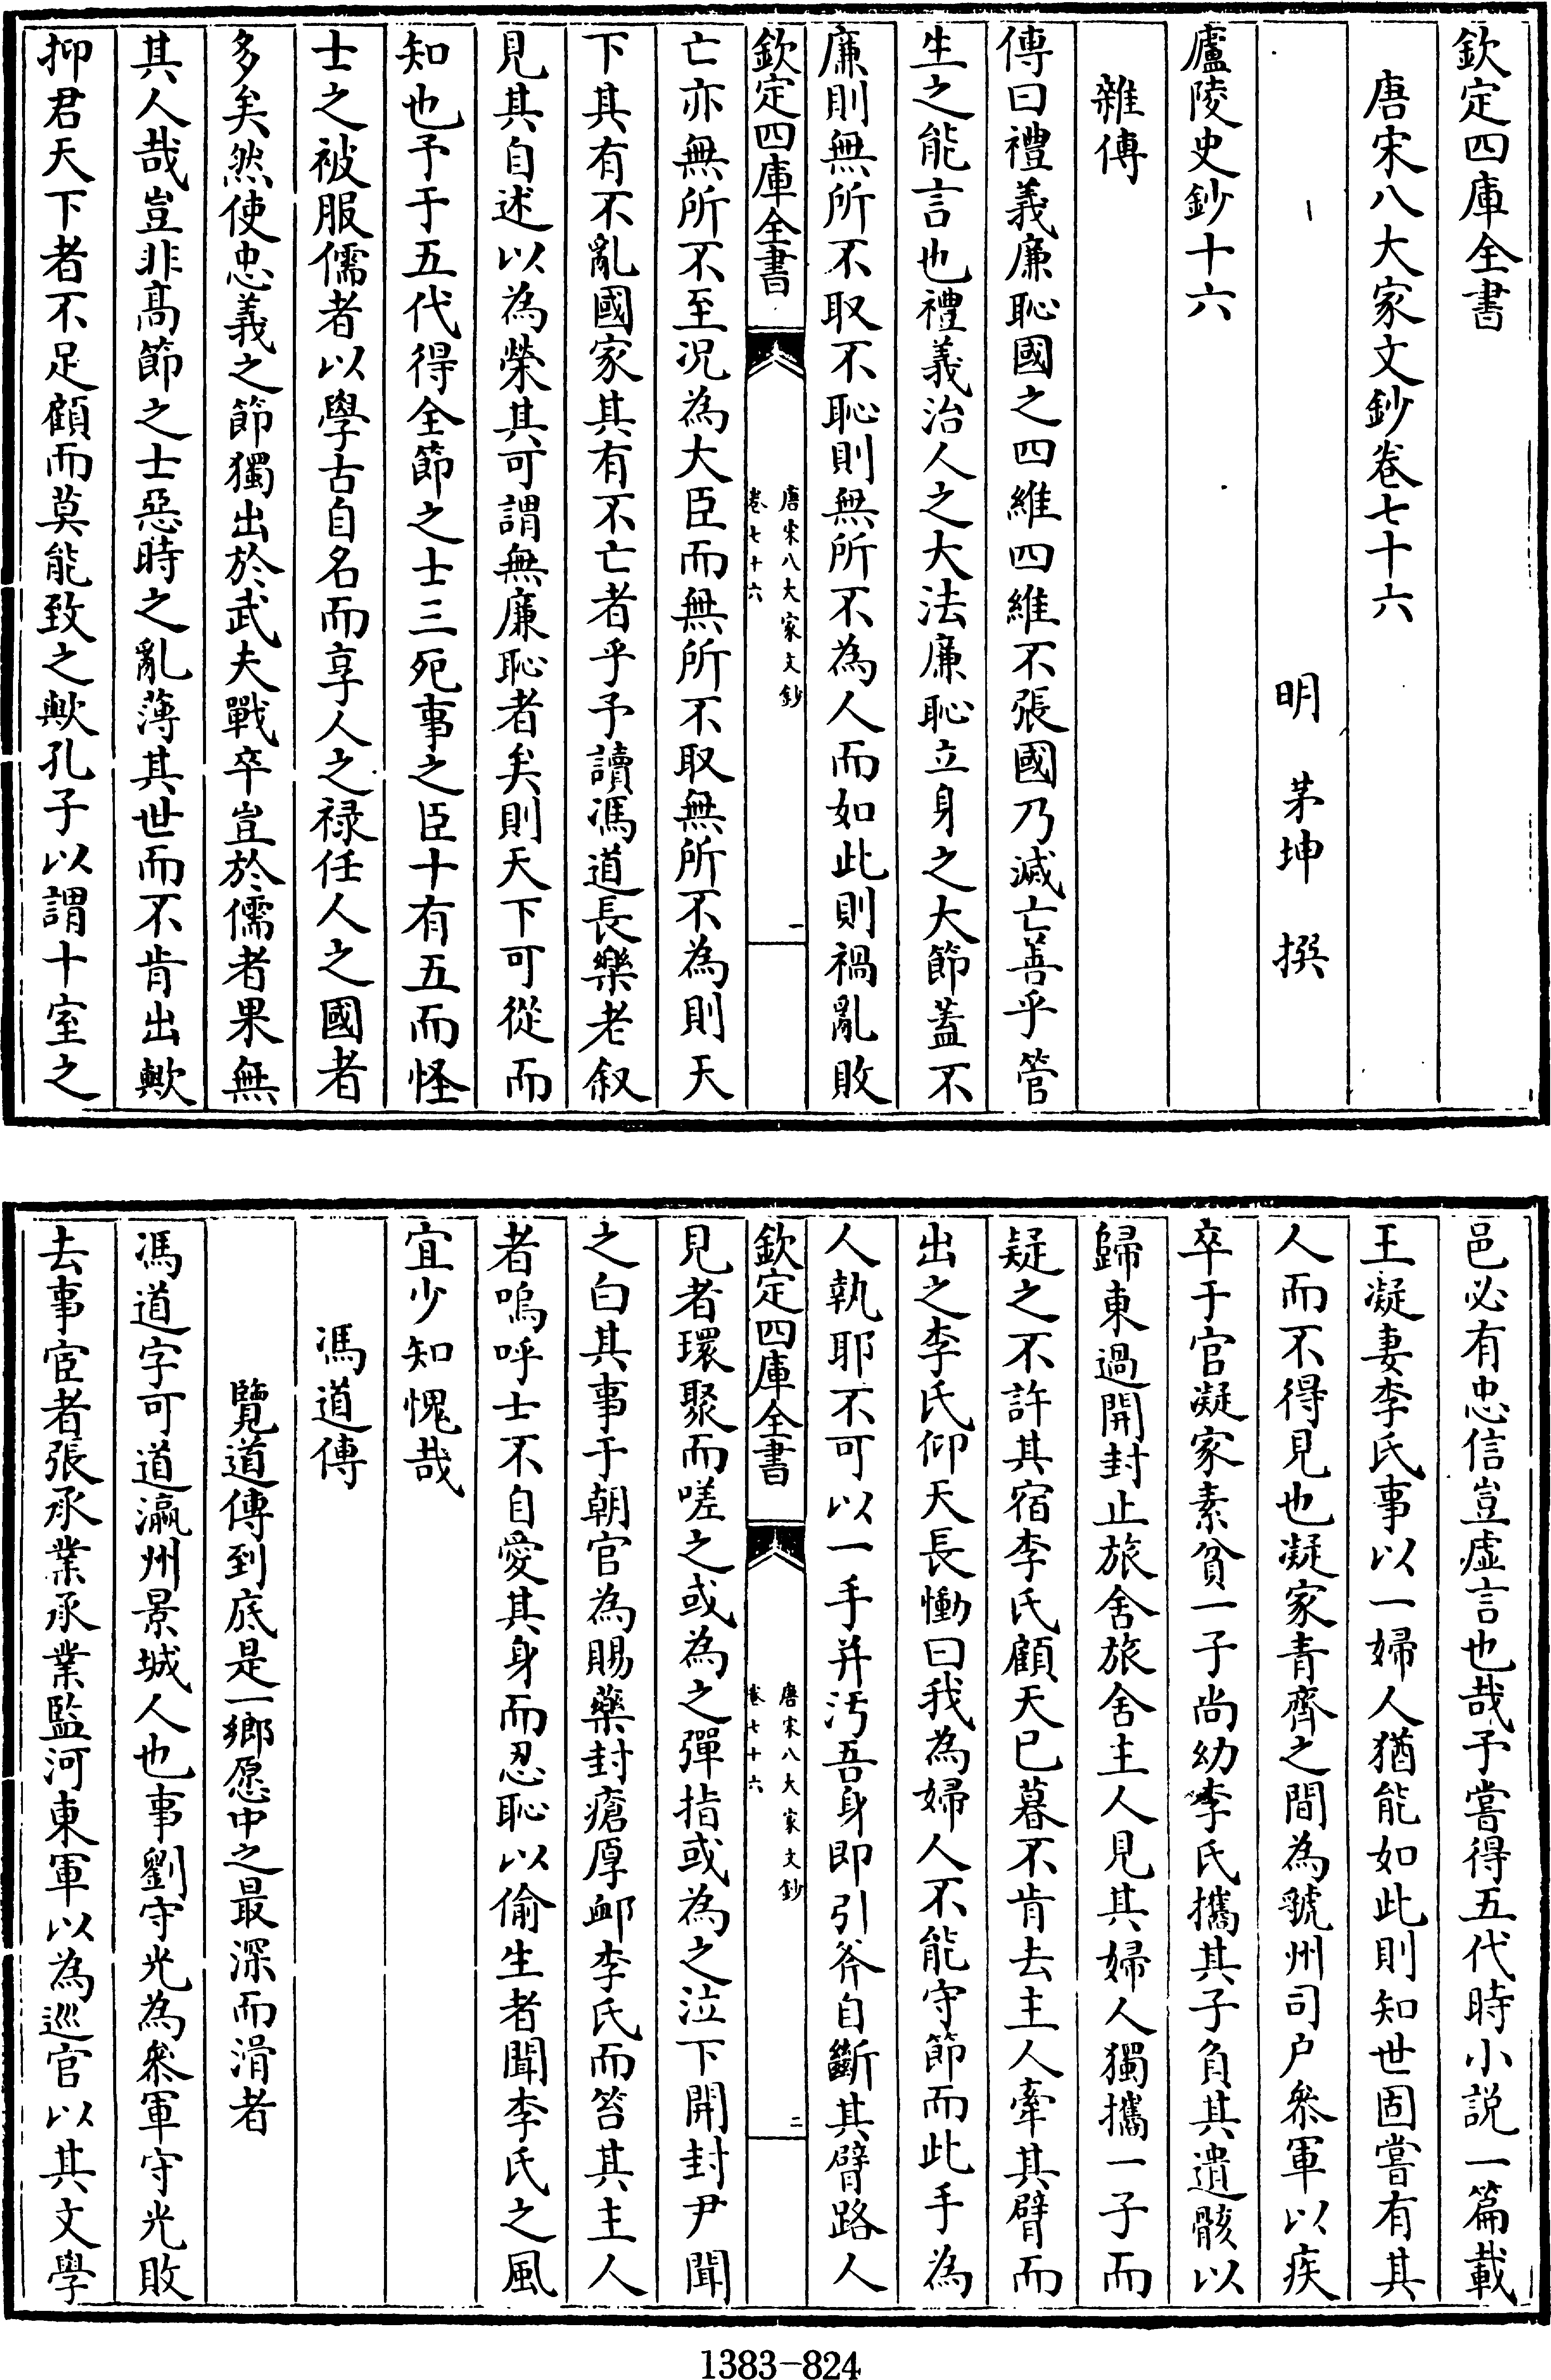 欽定四庫全書
唐宋八大家文鈔卷七十六
明 茅坤 撰
廬陵史鈔十六
雜傳
傳曰禮義廉恥國之四維四維不張國乃滅亡善乎管
生之能言也禮義治人之大法廉恥立身之大節蓋不
廉則無所不取不恥則無所不為人而如此則禍亂敗
欽定四庫全書
唐宋八大家文鈔
卷七十六
一
亡亦無所不至况為大臣而無所不取無所不為則天
下其有不亂國家其有不亡者乎予讀馮道長樂老叙
見其自述以為榮其可謂無廉恥者矣則天下可從而
知也予于五代得全節之士三死事之臣十有五而怪
士之被服儒者以學古自名而享人之禄任人之國者
多矣然使忠義之節獨出於武夫戰卒豈於儒者果無
其人哉豈非高節之士惡時之亂薄其世而不肯出歟
抑君天下者不足顧而莫能致之歟孔子以謂十室之
邑必有忠信豈虚言也哉予嘗得五代時小説一篇載
王凝妻李氏事以一婦人猶能如此則知世固嘗有其
人而不得見也凝家青齊之間為虢州司户參軍以疾
卒于官凝家素貧一子尚幼李氏攜其子負其遺骸以
歸東過開封止旅舍旅舍主人見其婦人獨攜一子而
疑之不許其宿李氏顧天已暮不肯去主人牽其臂而
出之李氏仰天長慟曰我為婦人不能守節而此手為
人執耶不可以一手并汚吾身即引斧自斷其臂路人
欽定四庫全書
唐宋八大家文鈔
卷七十六
二
見者環聚而嗟之或為之彈指或為之泣下開封尹聞
之白其事于朝官為賜藥封瘡厚卹李氏而笞其主人
者嗚呼士不自愛其身而忍恥以偷生者聞李氏之風
宜少知愧哉
馮道傳
覽道傳到底是一鄉愿中之最深而滑者
馮道字可道瀛州景城人也事劉守光為參軍守光敗
去事宦者張承業承業監河東軍以為巡官以其文學
1383-824